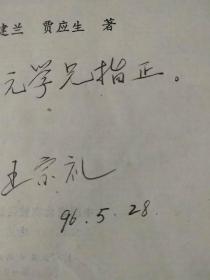 建兰 贾应生 著
元学兄指正。
王宗礼
96.5.28.